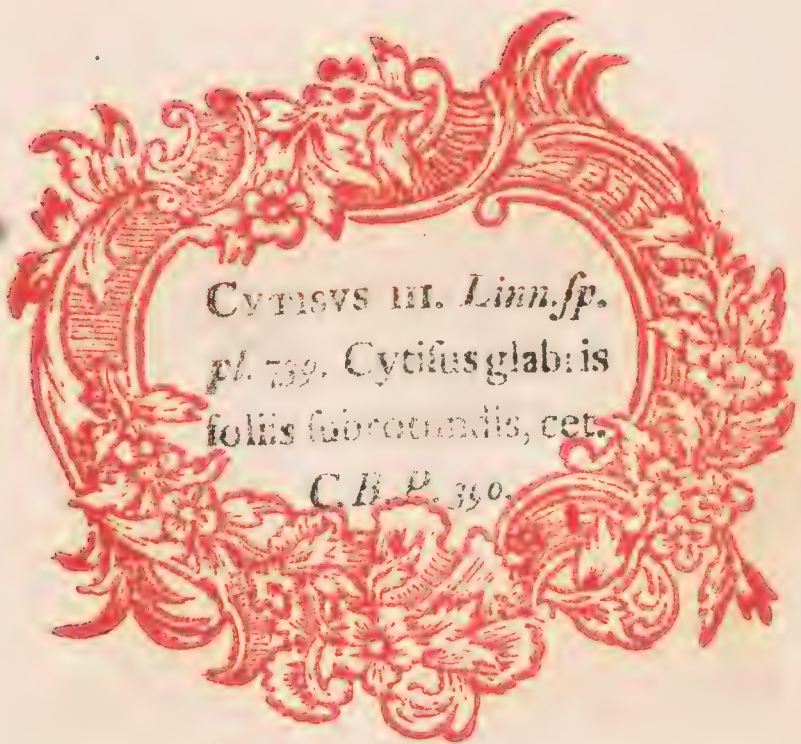 Cytisvs III. Linn.ſp.
pl. 739. Cytiſus glabris
foliis ſubrotundis, cet.
C. B. P. 390.